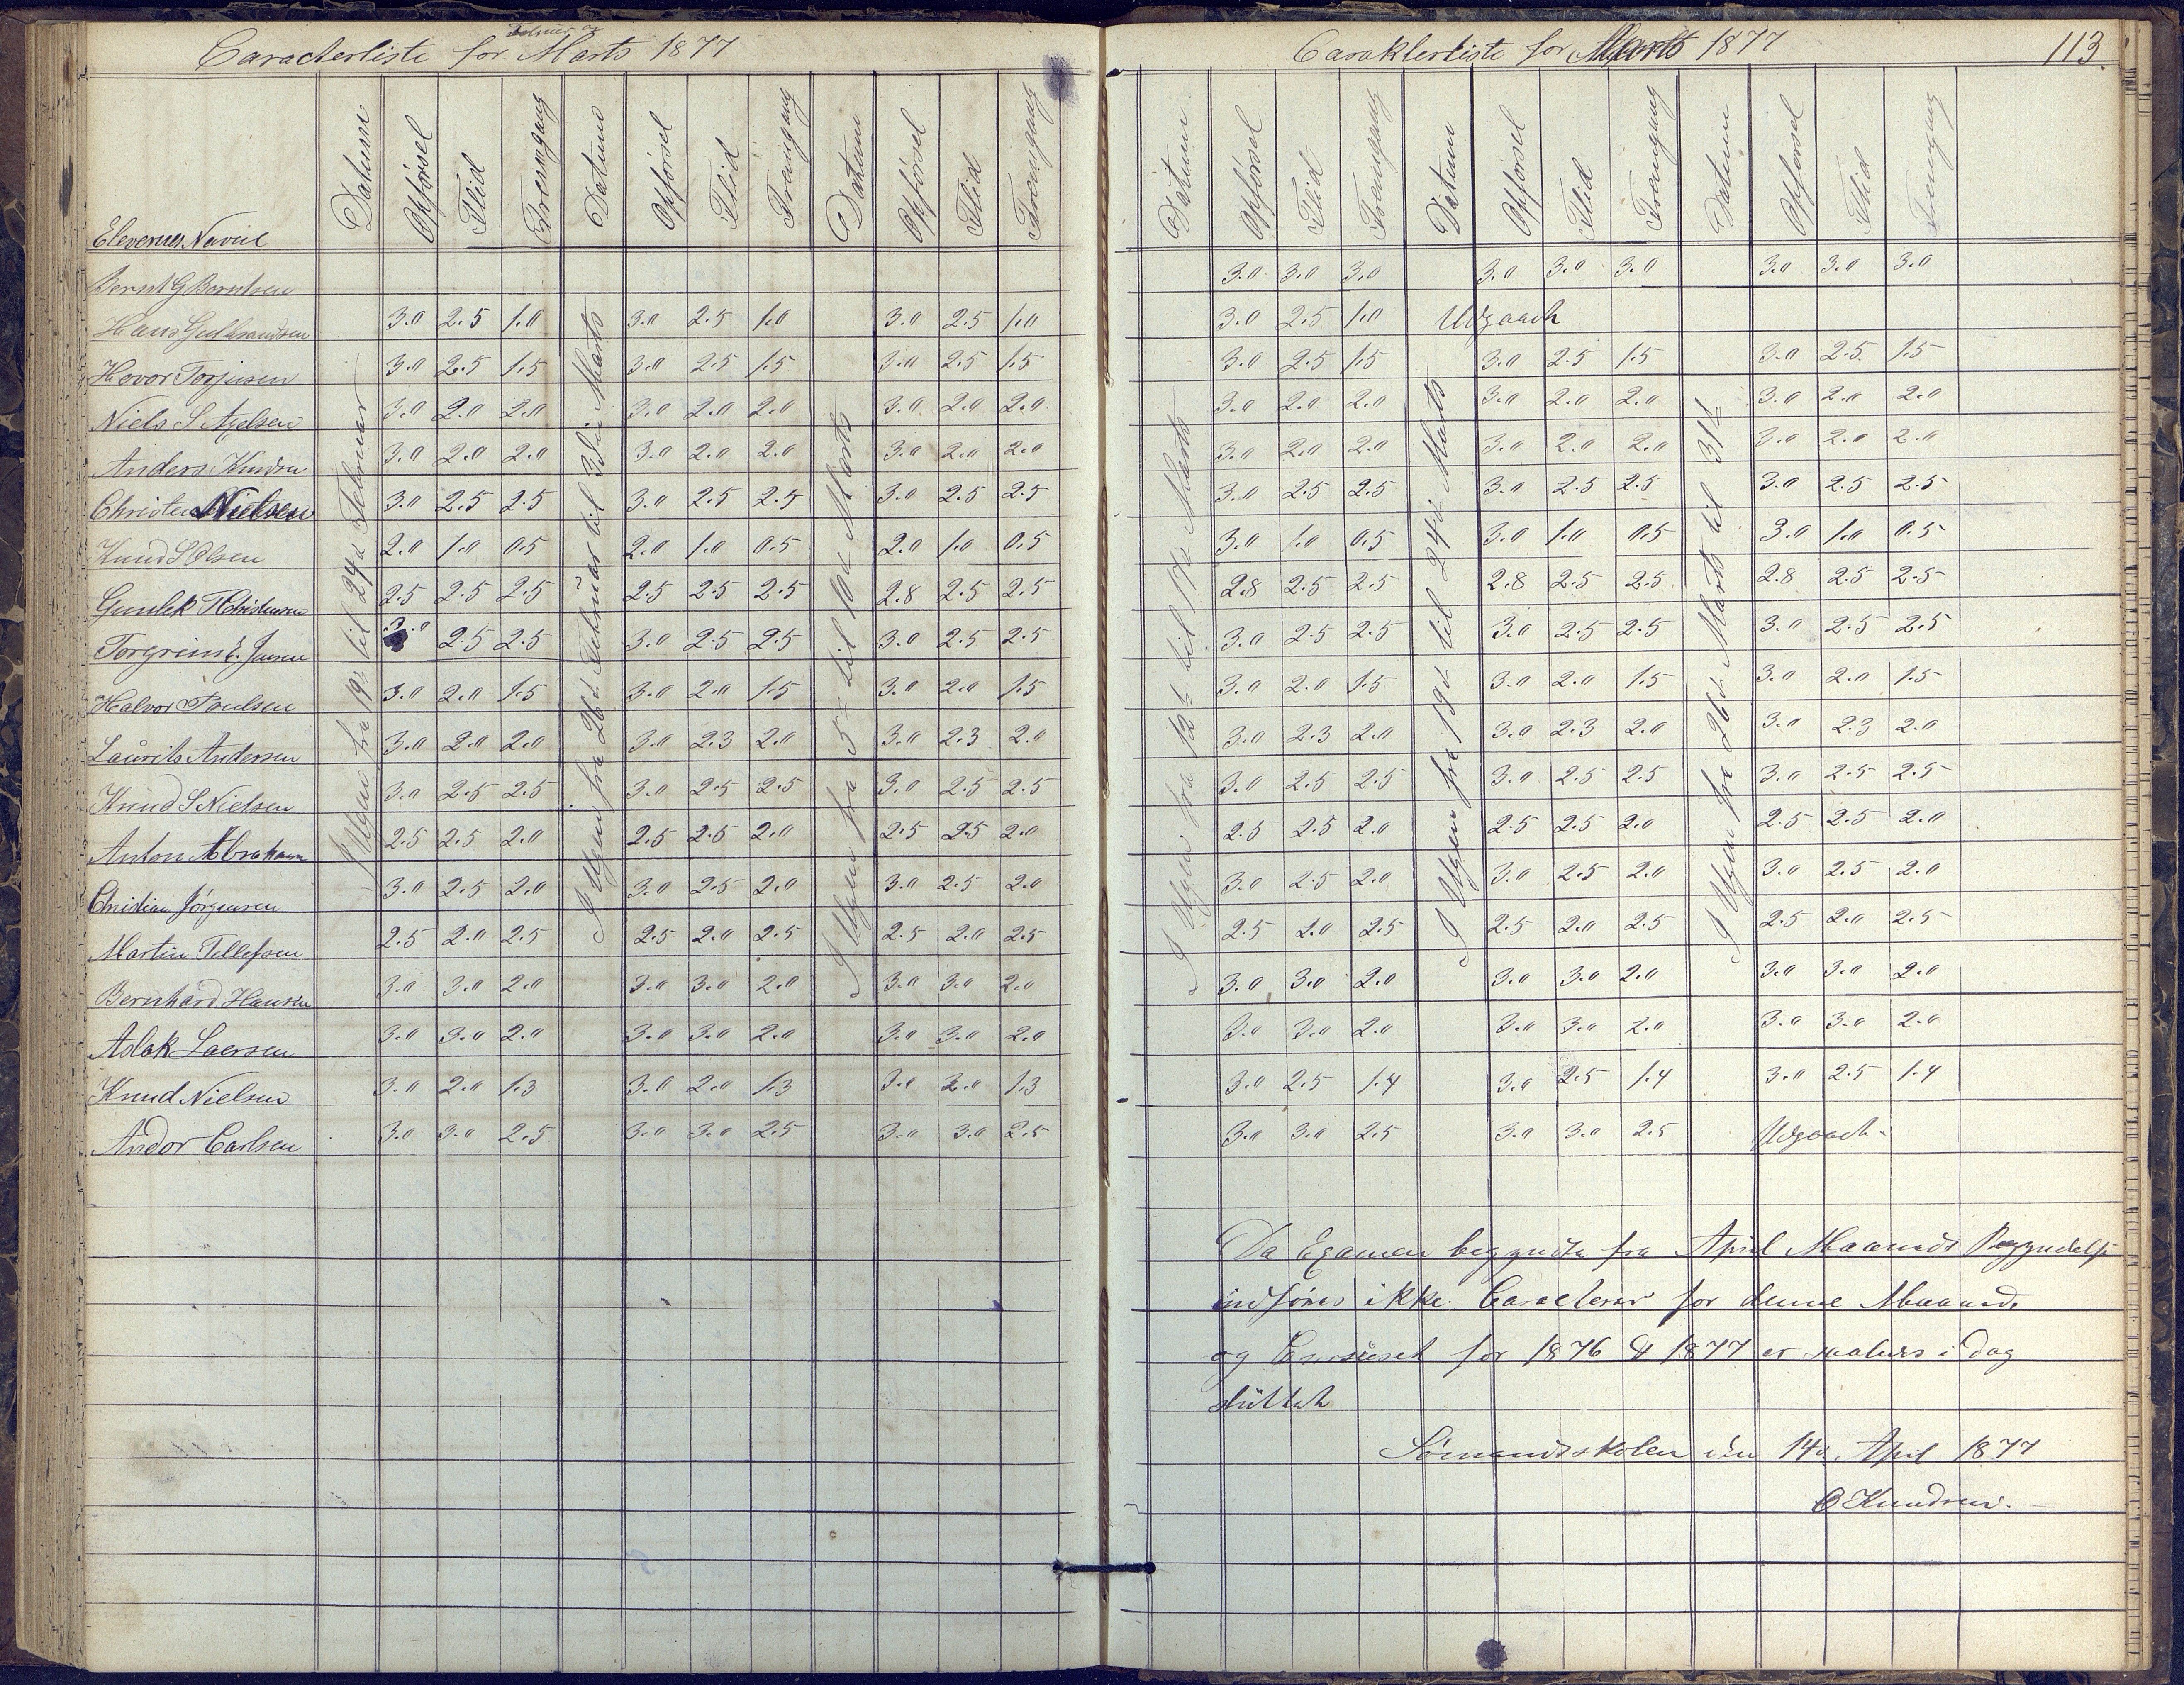 Februar og
Caracterliste for Marts 1877
Elevernes Navne Datum Opførsel Flid Fremgang Datum Opførsel Flid Fremgang Datum Opførsel Flid Fremgang
I Ugen fra 19de til 24d Februar
I Ugen fra 26d Februar til 3die Marts
I Ugen fra 5te til 10de Marts
Bernt G Berntsen
Hans Gulbrandsen 3.0 2.5 1.0 3.0 2.5 1.0 3.0 2.5 1.0
Hovor Torjusen 3.0 2.5 1.5 3.0 2.5 1.5 3.0 2.5 1.5
Niels S Axelsen 3.0 2.0 2.0 3.0 2.0 2.0 3.0 2.0 2.0
Anders Knudsen 3.0 2.0 2.0 3.0 2.0 2.0 3.0 2.0 2.0
Christen Nielsen 3.0 2.5 2.5 3.0 2.5 2.5 3.0 2.5 2.5
Knud S Olsen 2.0 1.0 0.5 2.0 1.0 0.5 2.0 1.0 0.5
Gunlek 2.5 2.5 2.5 2.5 2.5 2.5 2.8 2.5 2.5
Torgrim E. Jensen 3.0 2.5 2.5 3.0 2.5 2.5 3.0 2.5 2.5
Halvor Poulsen 3.0 2.0 1.5 3.0 2.0 1.5 3.0 2.0 1.5
Laurits Andersen 3.0 2.0 2.0 3.0 2.3 2.0 3.0 2.3 2.0
Knud S Nielsen 3.0 2.5 2.5 3.0 2.5 2.5 3.0 2.5 2.5
Anton Abrahamsen 2.5 2.5 2.0 2.5 2.5 2.0 2.5 2.5 2.0
Christian Jörgensen 3.0 2.5 2.0 3.0 2.5 2.0 3.0 2.5 2.0
Martin Tellefsen 2.5 2.0 2.5 2.5 2.0 2.5 2.5 2.0 2.5
Bernhard Hansen 3.0 3.0 2.0 3.0 3.0 2.0 3.0 3.0 2.0
Aslak Laersen 3.0 3.0 2.0 3.0 3.0 2.0 3.0 3.0 2.0
Knud Nielsen 3.0 2.0 1.3 3.0 2.0 1.3 3.0 2.0 1.3
Andor Carlsen 3.0 3.0 2.5 3.0 3.0 2.5 3.0 3.0 2.5
Carakterliste for Marts 1877 113.
Datum Opførsel Flid Fremgang Datum Opførsel Flid Fremgang Datum Opførsel Flid Fremgang
I Ugen fra 12te til 17de Marts
I Ugen fra 19d til 24de Marts
I Ugen fra 26d Marts til 31te
3.0 3.0 3.0 3.0 3.0 3.0 3.0 3.0 3.0
3.0 2.5 1.0 Udgaaet
3.0 2.5 1.5 3.0 2.5 1.5 3.0 2.5 1.5
3.0 2.0 2.0 3.0 2.0 2.0 3.0 2.0 2.0
3.0 2.0 2.0 3.0 2.0 2.0 3.0 2.0 2.0
3.0 2.5 2.5 3.0 2.5 2.5 3.0 2.5 2.5
3.0 1.0 0.5 3.0 1.0 0.5 3.0 1.0 0.5
2.8 2.5 2.5 2.8 2.5 2.5 2.8 2.5 2.5
3.0 2.5 2.5 3.0 2.5 2.5 3.0 2.5 2.5
3.0 2.0 1.5 3.0 2.0 1.5 3.0 2.0 1.5
3.0 2.3 2.0 3.0 2.3 2.0 3.0 2.3 2.0
3.0 2.5 2.5 3.0 2.5 2.5 3.0 2.5 2.5
2.5 2.5 2.0 2.5 2.5 2.0 2.5 2.5 2.0
3.0 2.5 2.0 3.0 2.5 2.0 3.0 2.5 2.0
2.5 2.0 2.5 2.5 2.0 2.5 2.5 2.0 2.5
3.0 3.0 2.0 3.0 3.0 2.0 3.0 3.0 2.0
3.0 3.0 2.0 3.0 3.0 2.0 3.0 3.0 2.0
3.0 2.5 1.4 3.0 2.5 1.4 3.0 2.5 1.4
3.0 3.0 2.5 3.0 3.0 2.5 Udgaaet.
Da Examen begyndte fra April Maaneds Begyndelse
indføres ikke Caracterer for denne Maaned.
og Cursuset for 1876 & 1877 er saaledes i Dag
sluttet
Sømandsskolen den 14d. April 1877
O Knudsen.